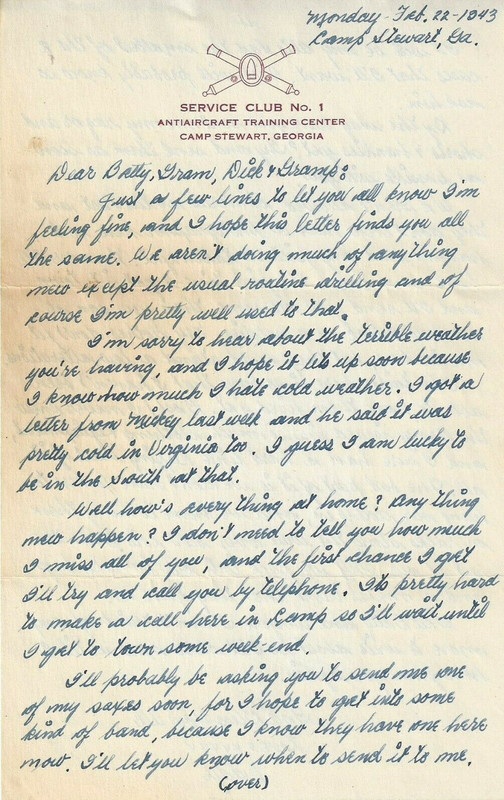 Monday - Feb. 22-1943
Camp Stewart, Ga.
SERVICE CLUB No. 1
ANTIAIRCRAFT TRAINING CENTER
CAMP STEWART, GEORGIA
Dear Betty, Gram, Dick & Gramps:
Just a few lines to let you all know I'm
feeling fine, and I hope this letter finds you all
the same. We aren't doing much of anything
new except the usual routine drilling and of
course I'm pretty well used to that.
I'm sorry to hear about the terrible weather
you're having, and I hope it lets up soon because
I know how much I hate cold weather. I got a
letter from Mickey last week and he said it was
pretty cold in Virginia too. I guess I am lucky to
be in the South at that.
Well how's every thing at home? Any thing
new happen? I don't need to tell you how much
I miss all of you, and the first chance I get
I'll try and call you by telephone. Its pretty hard
to make a call here in Camp so I'll wait until
I get to town some week-end.
I'll probably be asking you to send me one
of my saxes soon, for I hope to get into some
kind of band, because I know they have one here
now. I'll let you know when to send it to me.
(over)